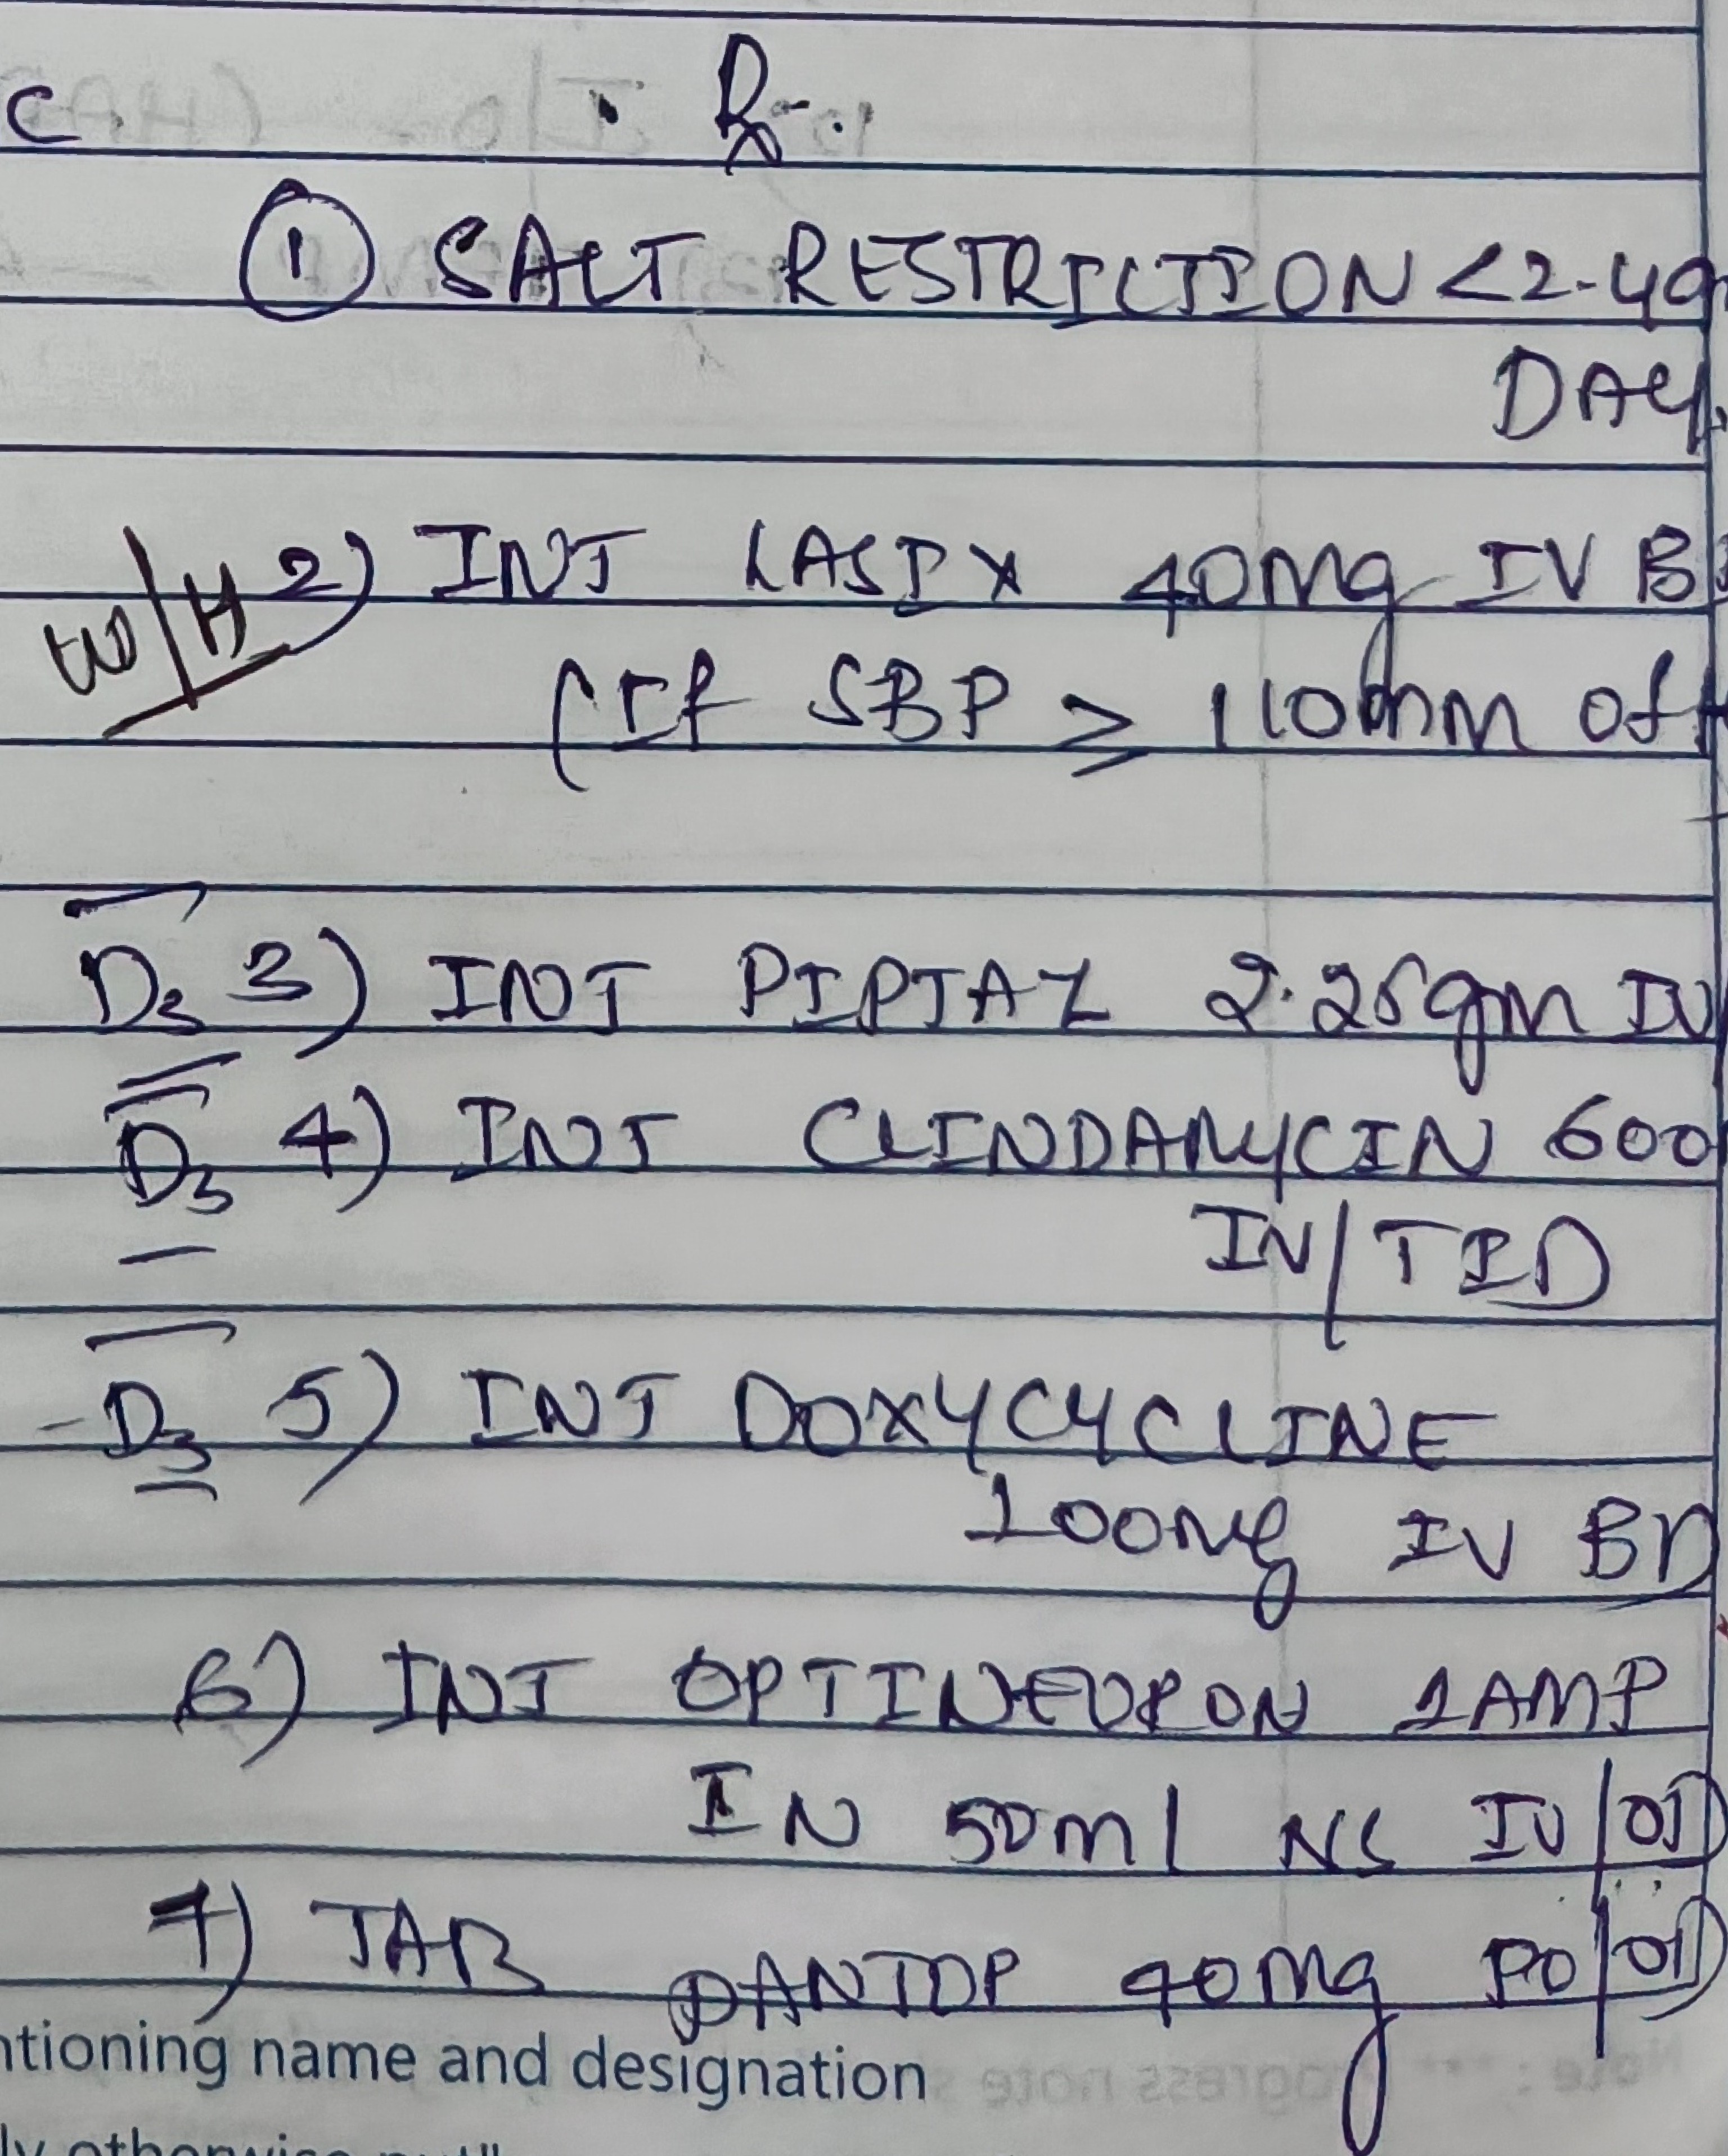 C Rx
① SALT RESTRICTION <2.4g
DAY
W/H 2) INJ LASIX 40mg IV B
(If SBP ≥ 110mm of
D3 3) INJ PIPTAZ 2.25gm IV
D3 4) INJ CLINDAMYCIN 600
IV/TID
D3 5) INJ DOXYCYCLINE
100mg IV BD
6) INJ OPTINEURON 1AMP
IN 50ml NS IV/OD
7) TAB PANTOP 40mg PO/OD
ntioning name and designation